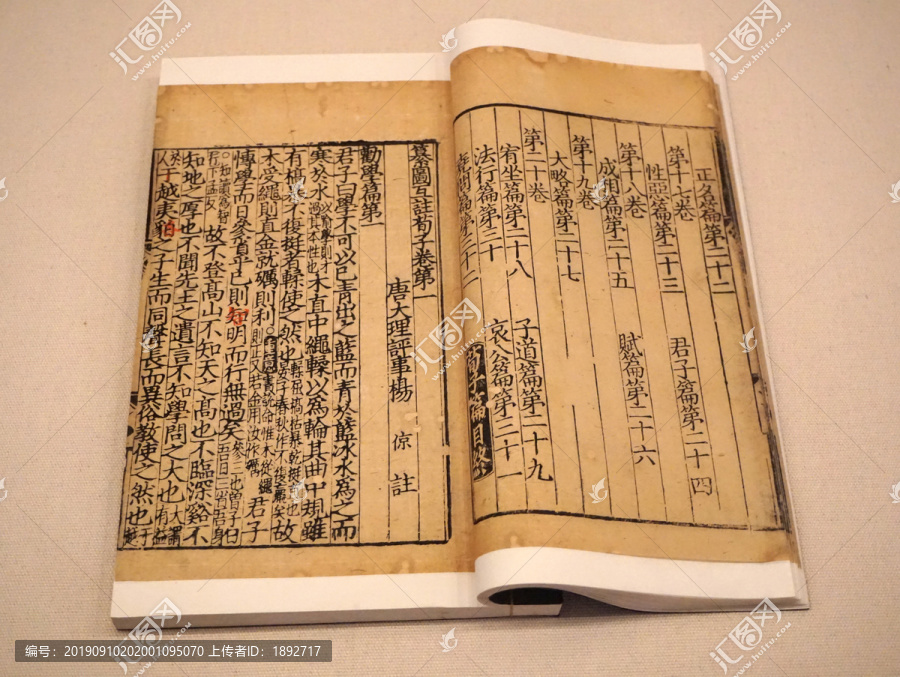 正名篇第二十二
第十七卷
性惡篇第二十三 君子篇第二十四
第十八卷
成相篇第二十五 賦篇第二十六
第十九卷
大略篇第二十七
第二十卷
宥坐篇第二十八 子道篇第二十九
法行篇第三十 哀公篇第三十一
纂圖互註荀子卷第一
唐大理評事楊 倞 註
勸學篇第一
君子曰學不可以已青出之藍而青於藍冰水為之而
寒於水以喻學則才過其本性也木直中繩輮以為輪其曲中規雖
有槁暴不復挺者輮使之然也 故
木受繩則直金就礪則利 君子
博學而日參省乎己則知明而行無過矣
故不登高山不知天之高也不臨深谿不
知地之厚也不聞先王之遺言不知學問之大也大謂有益
于越夷貉之子生而同聲長而異俗教使之然也
汇图网
www.huitu.com
编号：20190910202001095070 上传者ID：1892717